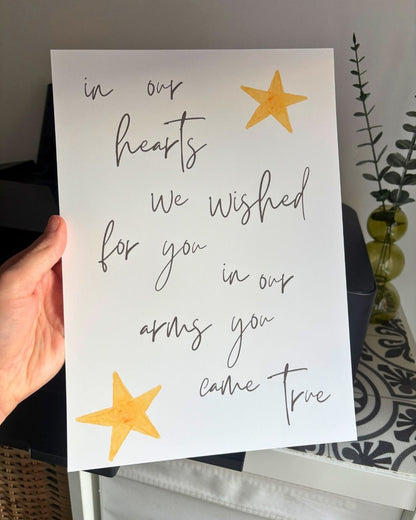 in our
hearts
we wished
for you
in our
arms you
came True